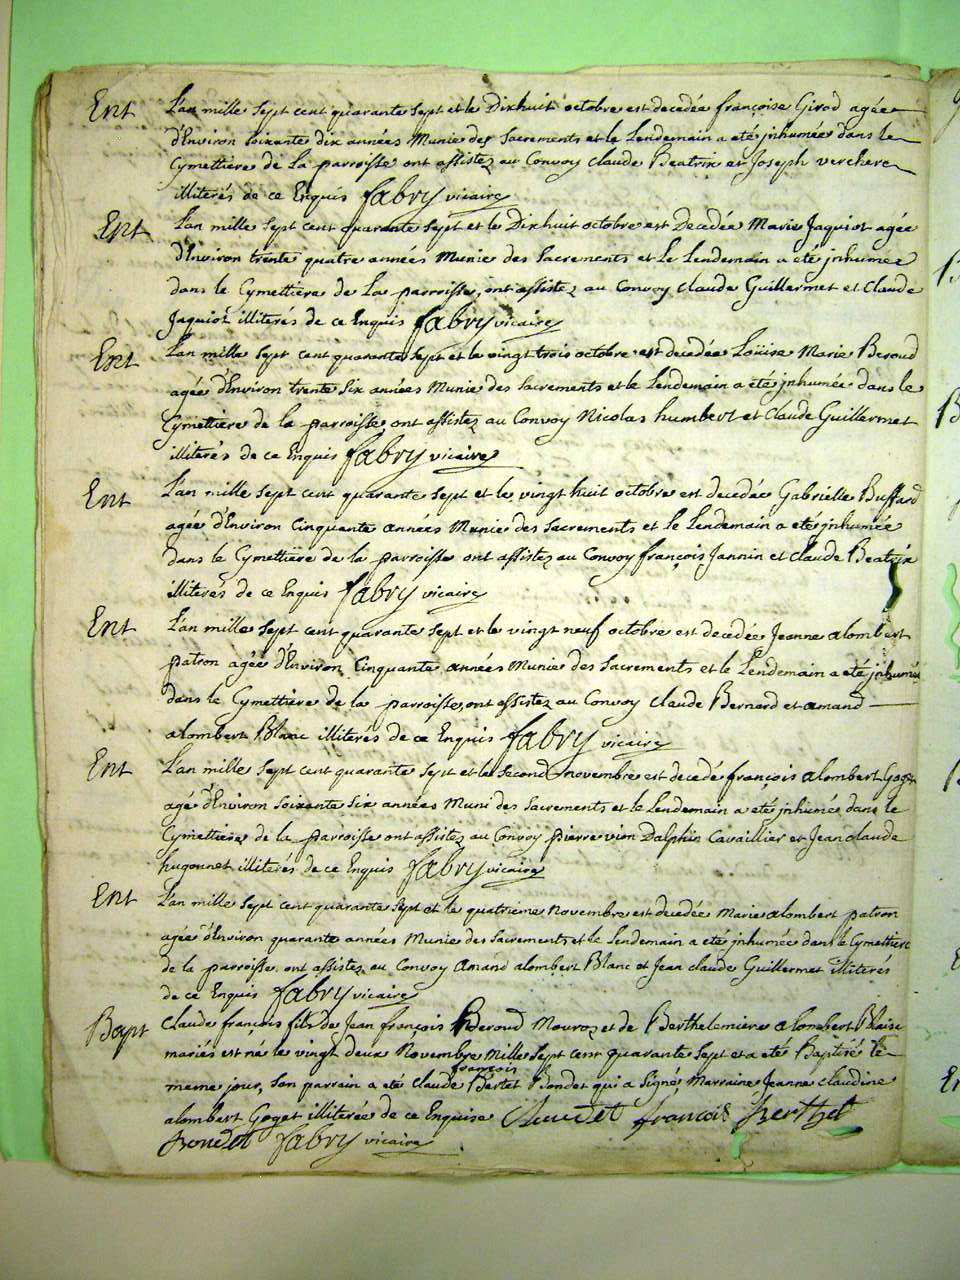 Ent L'an mille sept cent quarante sept et le Dixhuit octobre est decedée françoise Girod agée
d'Environ soixante dix années Munie des sacrements et le Lendemain a eté jnhumée dans le
Cymettiere de La parroisse ont assistez au Convoy Claude Beatrix et Joseph verchere
illiterés de ce Enquis fabry vicaire
Ent L'an mille sept cent quarante sept et le Dixhuit octobre est Decedée Marie Jaquiot agée
d'Environ trente quatre années Munie des Sacrements et Le Lendemain a eté jnhumée
dans le Cymettiere de La parroisse, ont assistez au Convoy Claude Guillermet et Claude
Jaquiot illiterés de ce Enquis fabry vicaire
Ent L'an mille sept cent quarante sept et le vingt trois octobre est decedée Loüise Marie Beroud
agée d'Environ trente six années Munie des Sacrements et le Lendemain a eté jnhumée dans le
Cymettiere de la parroisse, ont assistez au Convoy Nicolas humbert et Claude Guillermet
illiterés de ce Enquis fabry vicaire
Ent L'an mille sept cent quarante sept et le vingt huit octobre est decedée Gabrielle Buffard
agée d'Environ Cinquante années Munie des Sacrements et le Lendemain a eté jnhumée
dans le Cymettiere de la parroisse ont assistez au Convoy françois Jannin et Claude Beatrix
illiterés de ce Enquis fabry vicaire
Ent L'an mille sept cent quarante sept et le vingt neuf octobre est decedée Jeanne alombert
patron agée d'Environ Cinquante années Munie des Sacrements et le Lendemain a eté jnhumée
dans le Cymettiere de la parroisse, ont assistez au Convoy Claude Bernard et amand
alombert Blanc illiteres de ce Enquis fabry vicaire
Ent L'an mille sept cent quarante sept et le second novembre est decedé françois alombert Goget
agé d'Environ Soixante six années Muni des Sacrements et le Lendemain a eté jnhumé dans le
Cymettiere de la parroisse ont assistez au Convoy pierre vion Dalphin Cavaillier et Jean claude
hugonnet illiterés de ce Enquis fabry vicaire
Ent L'an mille sept cent quarante sept et le quatrieme Novembre est decedée Marie alombert patron
agée d'Environ quarante années Munie des Sacrements et le Lendemain a eté jnhumée dans le Cymettiere
de la parroisse ont assistez au Convoy amand alombert Blanc et Jean claude Guillermet illiterés
de ce Enquis fabry vicaire
Bapt Claude françois fils de Jean françois Beroud Mouroz et de Berthelemiere alombert Blaise
mariés est né le vingt deux Novembre Mille sept cent quarante sept et a eté Baptisé le
meme jour, son parrain a eté Claude françois Bertet Bondet qui a signé, Marraine Jeanne claudine
alombert Goget illiterée de ce Enquise Claude françois Berthet
Bondet fabry vicaire